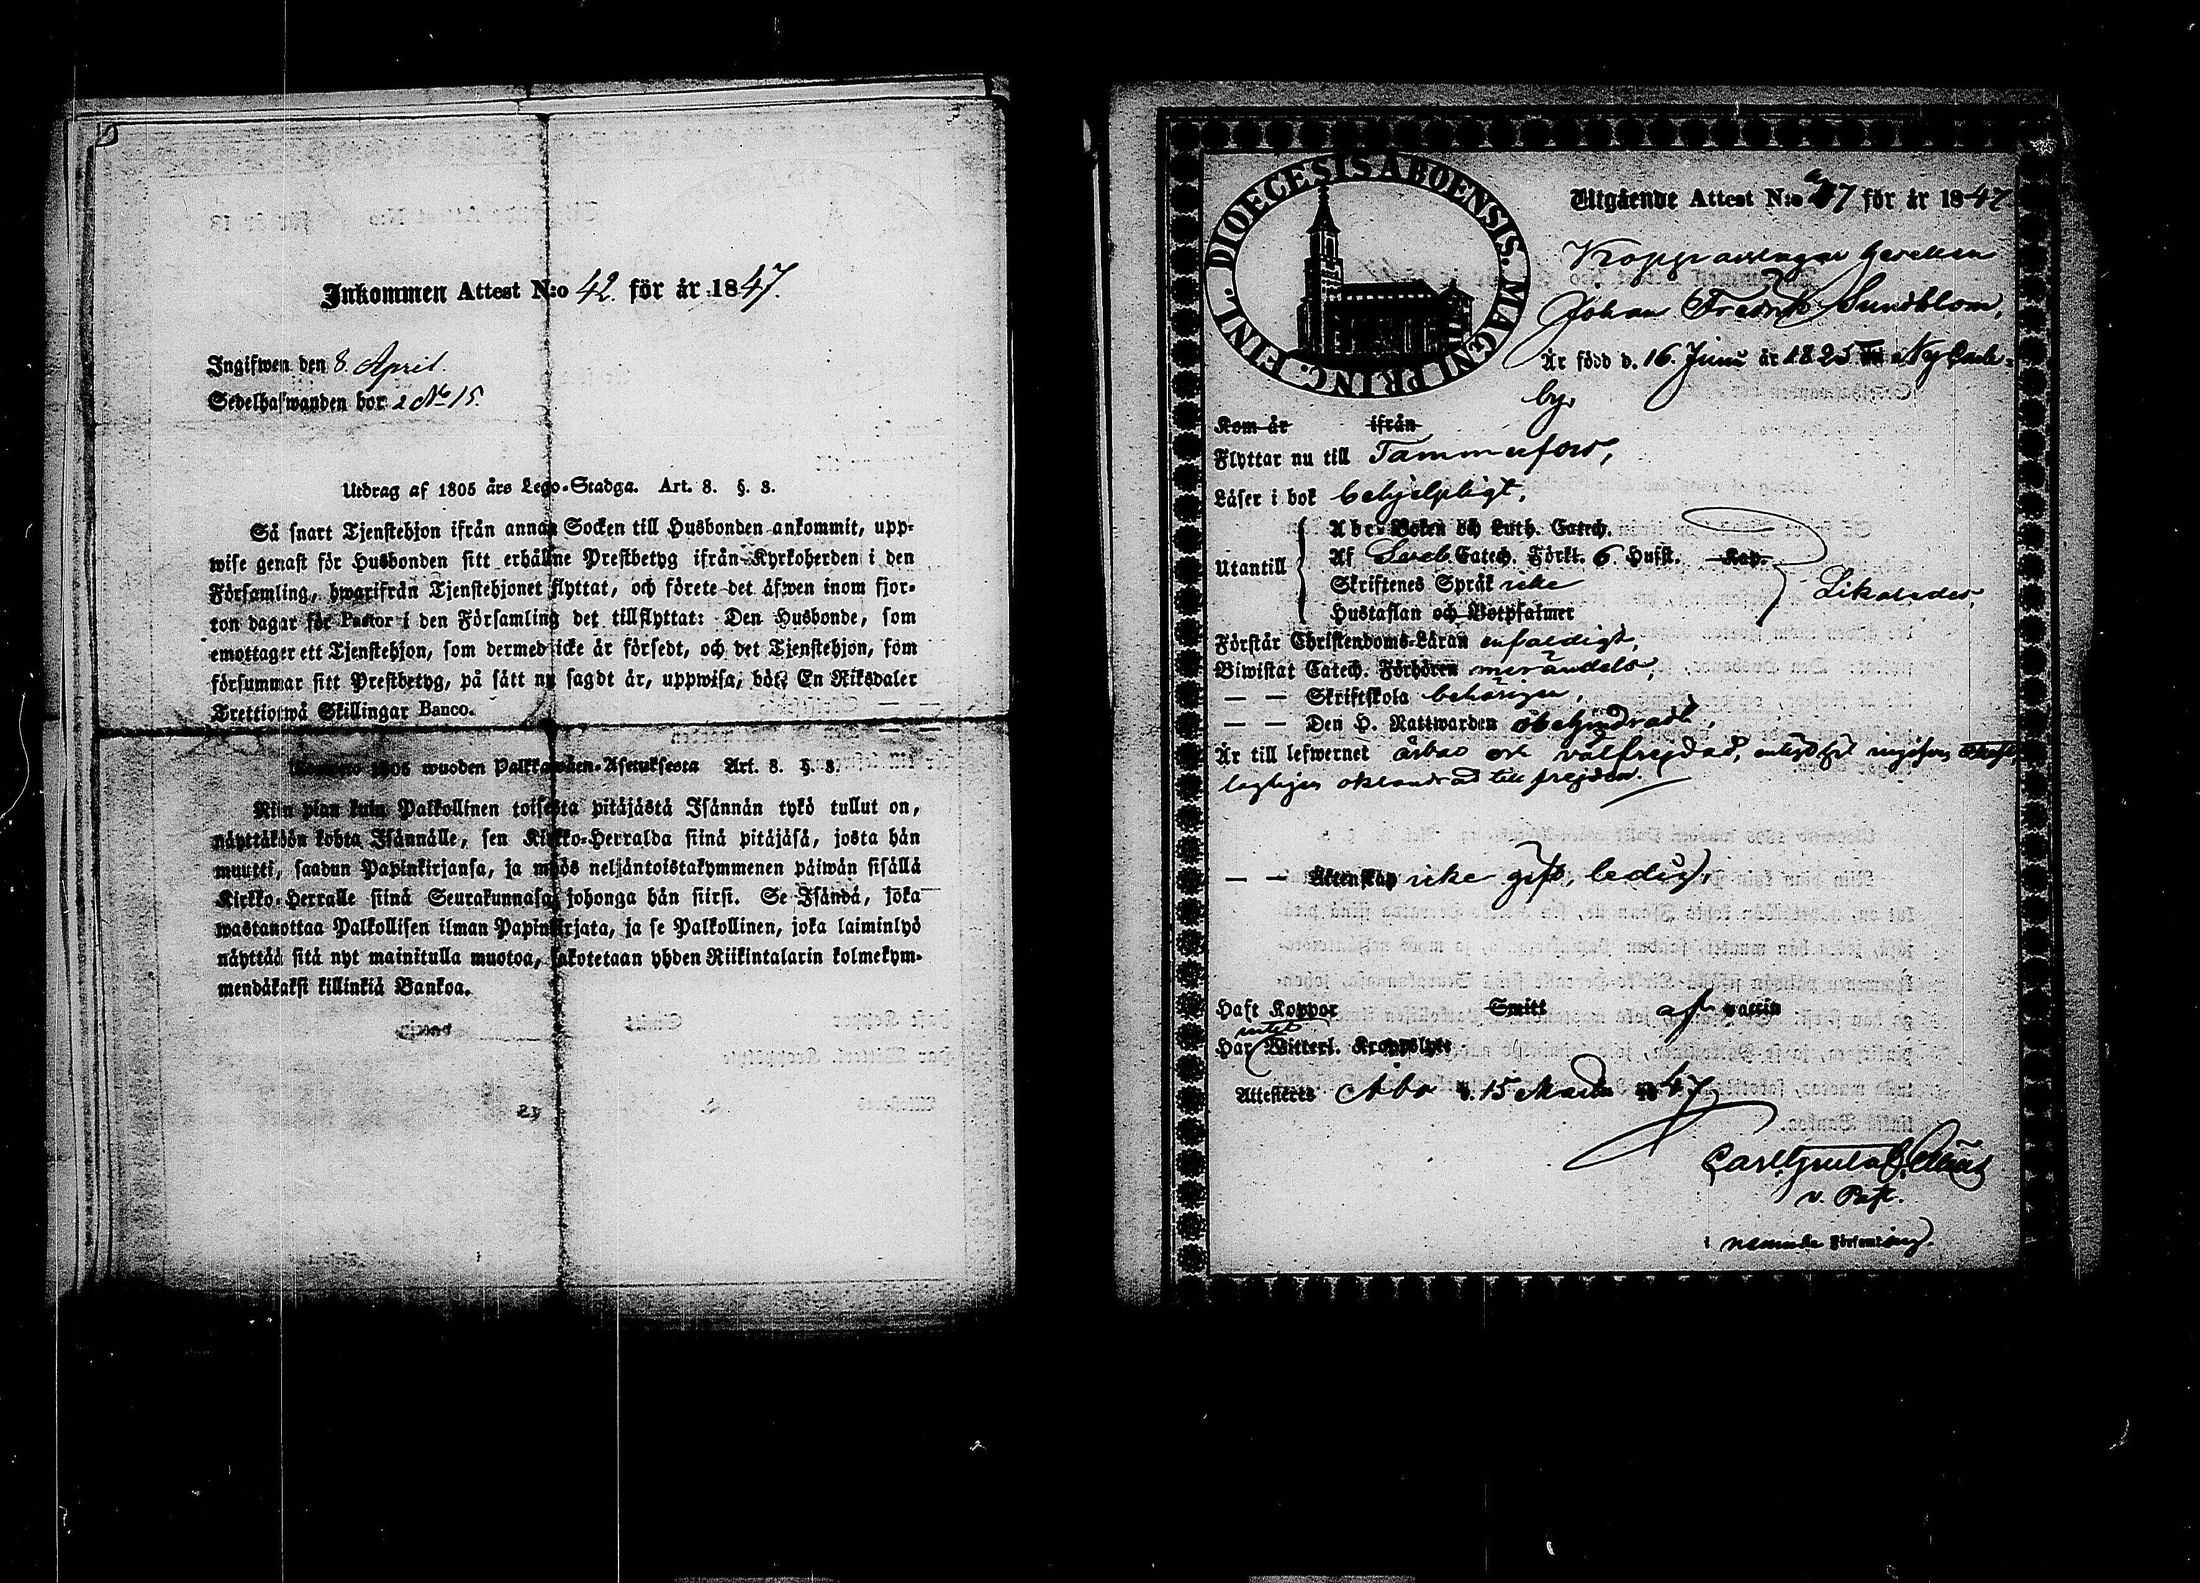 Inkommen Attest N:o 42. för år 1847.
Ingifwen den 8. April.
Sedelhafwanden bor 2 No 15.
Utdrag af 1805 års Lego-Stadga. Art. 8. §. 3.
Så snart Tjenstehjon ifrån annan Socken till Husbonden ankommit, upp-
wise genast för Husbonden sitt erhållne Prestbetyg ifrån Kyrkoherden i den
Församling, hwarifrån Tjenstehjonet flyttat, och förete det äfwen inom fjor-
ton dagar för Pastor i den Församling det tillflyttat: Den Husbonde, som
emottager ett Tjenstehjon, som dermed icke är försedt, och det Tjenstehjon, som
försummar sitt Prestbetyg, på sätt nu sagdt är, uppwisa, böte En Riksdaler
Trettiotwå Skillingar Banco.
1805 wuoden Palkkawäen-Asetuksesta Art. 8. §. 3.
Niin pian kuin Palkollinen toisesta pitäjästä Isännän tykö tullut on,
näyttäköön kohta Isännälle, sen Kirkko-Herralda siinä pitäjäsä, josta hän
muutti, saadun Papinkirjansa, ja myös neljäntoistakymmenen päiwän sisällä
Kirkko-Herralle siinä Seurakunnasa, johonga hän siirsi. Se Isändä, joka
wastanottaa Palkollisen ilman Papinkirjata, ja se Palkollinen, joka laiminlyö
näyttää sitä nyt mainitulla muotoa, sakotetaan yhden Riikintalarin kolmekym-
mendäkaksi killinkiä Bankoa.
DIOECESIS ABOENSIS. MAGNI PRINC. FINL.
Utgående Attest N:o 7 för år 1847
Johan Fredrik Sundblom,
Är född d. 16. Junii år 1825 i Nycarle-
by.
Kom år ifrån
Flyttar nu till Tammerfors,
Läser i bok behjelpligt,
Utantill
Abc-Boken och Luth. Catech.
Af Sveb. Catech. Förkl. 6. Hufst. Kap.
Skriftenes Språk icke
Hustaflan och Botpsalmer
Likaledes,
Förstår Christendoms-Läran enfaldigt,
Biwistat Catech. Förhören merändels,
— — Skriftskola behörigen,
— — Den H. Nattwarden obehindradt,
Är till lefwernet ärbar och välfrejdad,
lagligen oklandrad till frejden.
— — Äktenskap icke gift, ledig,
Haft Koppor Smitt af vaccin
intet
Har Witterl. Kroppslyte
Attesteras Åbo d. 15 Martii 1847
v. Past.
i nämnde Församling.